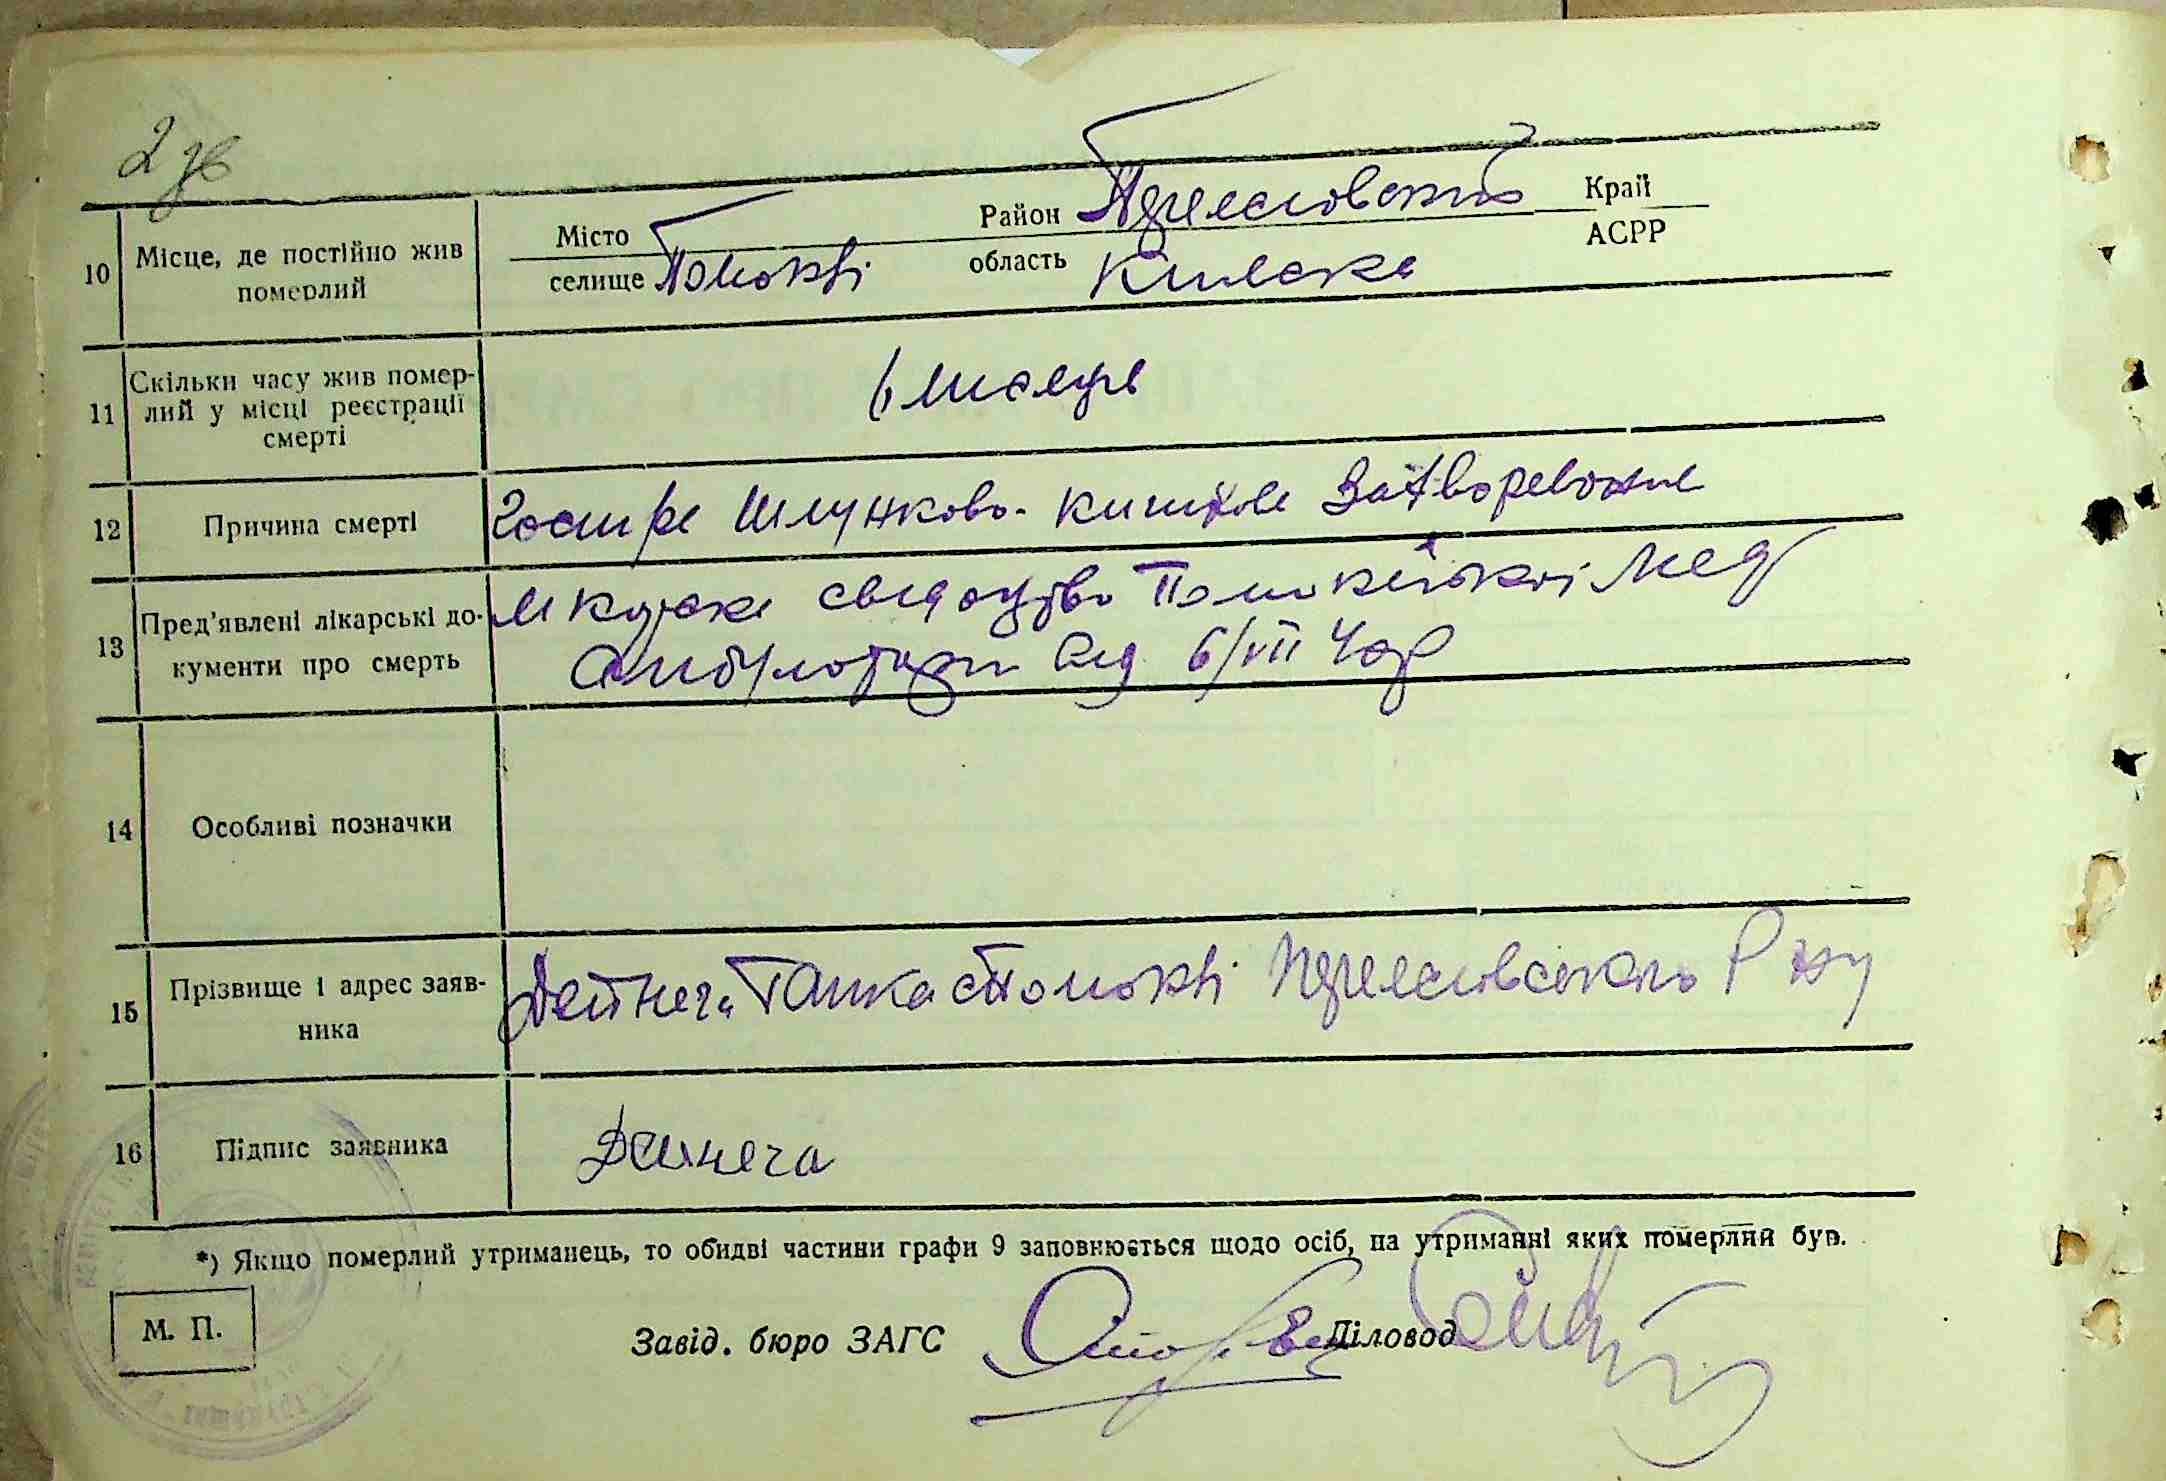 2зв
10 Місце, де постійно жив померлий
Місто
селище Помоклі
Район Переяславський
область Київська
Край
АСРР
11 Скільки часу жив помер-
лий у місці реєстрації
смерті
6 місяців
12 Причина смерті
Гостре шлунково-кишкове
13 Пред'явлені лікарські до-
кументи про смерть
свідоцтво Помоклійської мед
амбулаторії від 6/VII
14 Особливі позначки
15 Прізвище і адрес заяв-
ника
Дейнега Ганка с Помоклі Переяславського р ну
16 Підпис заявника
Дейнега
*) Якщо померлий утриманець, то обидві частини графи 9 заповнюється щодо осіб, на утриманні яких померлий був.
М. П.
Завід. бюро ЗАГС
Діловод